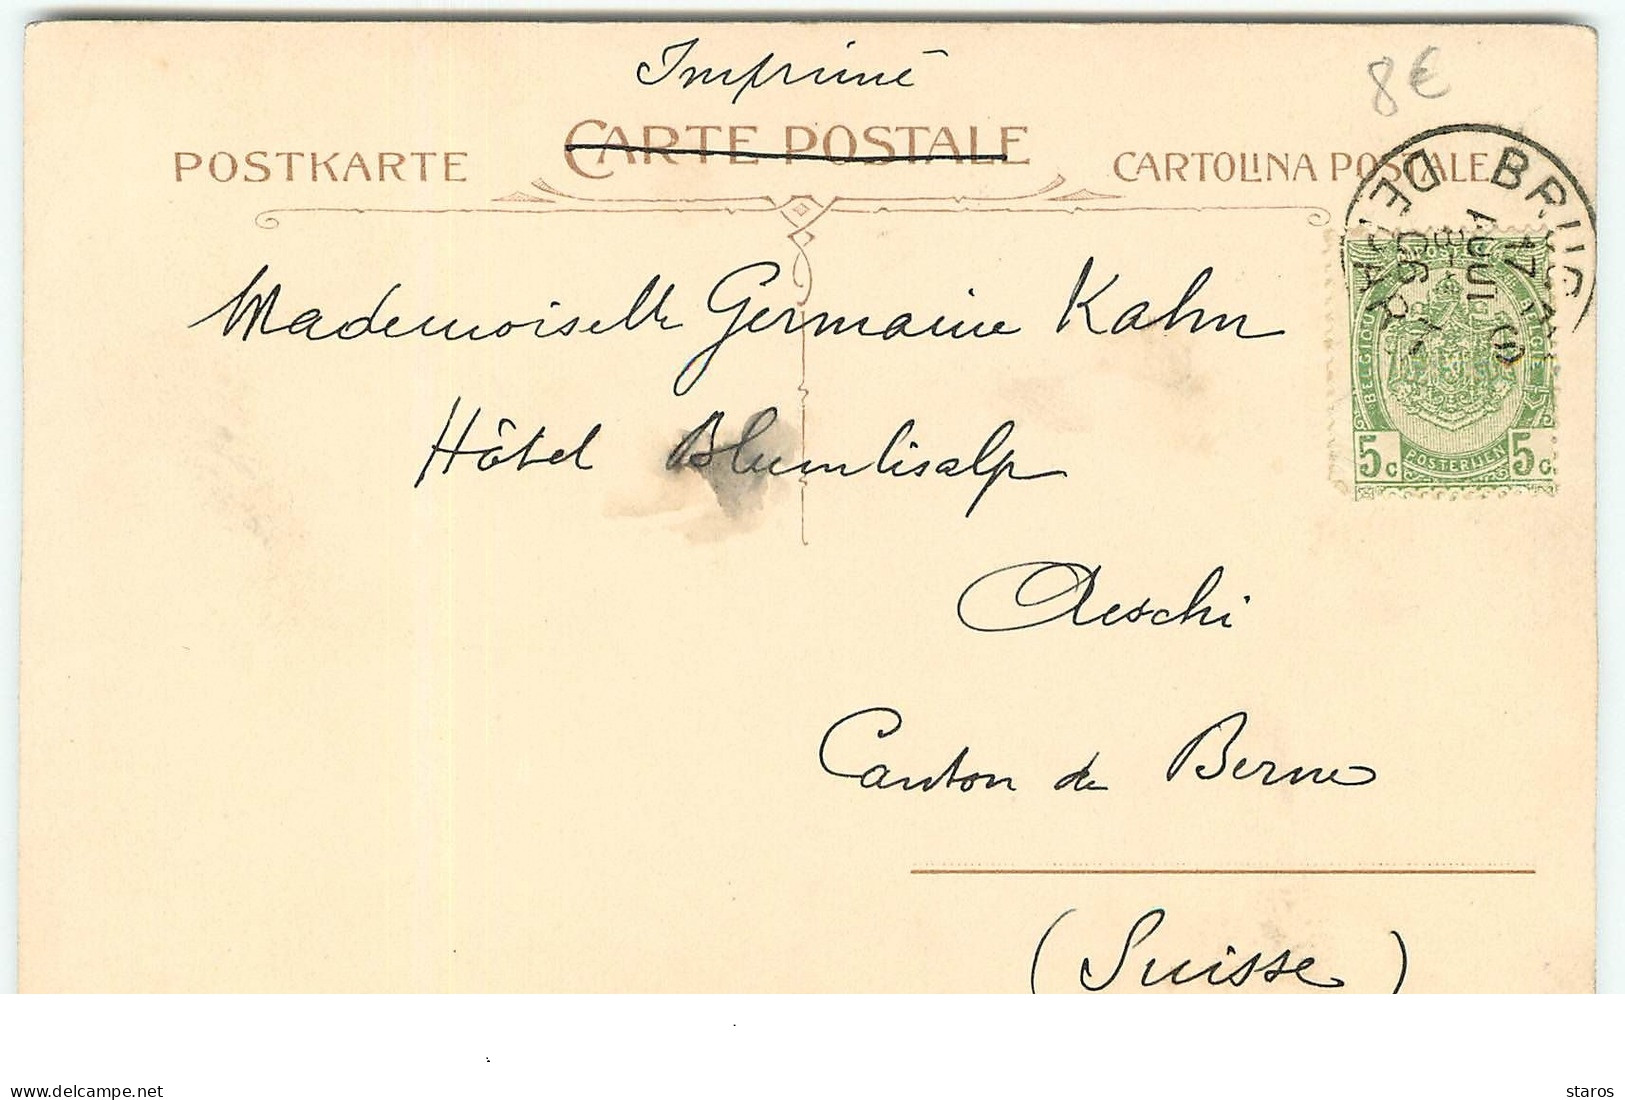 Imprimé
8€
POSTKARTE
CARTE POSTALE
CARTOLINA POSTALE
Mademoiselle Germaine Kahn
Hôtel Blumlisalp
Aeschi
Canton de Berne
(Suisse)
BELGIQUE
BELGIE
5c POSTERIJEN 5c
17
AOUT
www.delcampe.net
staros